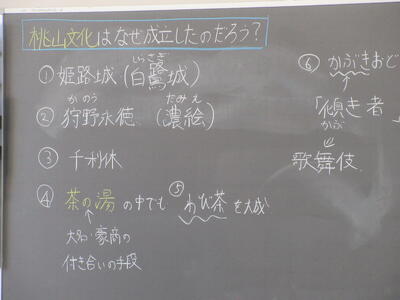 桃山文化はなぜ成立したのだろう？
しらさぎ
①姫路城(白鷺城)
かのう
たみえ
②狩野永徳(濃絵)
③千利休
④茶の湯の中でも⑤わび茶を大成
大名・豪商の
付き合いの手段
⑥かぶきおど
「傾き者
かぶ
歌舞伎